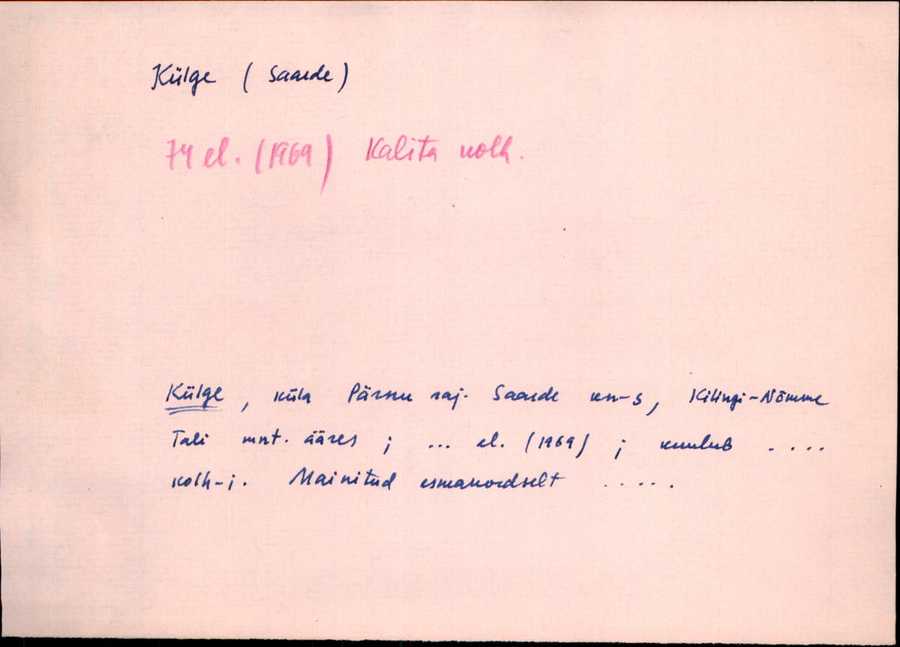 Külge (Saarde)
74 el. (1969) Kalita kolh.
Külge, küla Pärnu raj. Saarde kn-s, Kilingi-Nõmme
Tali mnt. ääres; ... el. (1969); kuulub ....
kolh-i. Mainitud esmakordselt .....